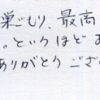 巣ごもり、最高
。というほど
ありがとうござ